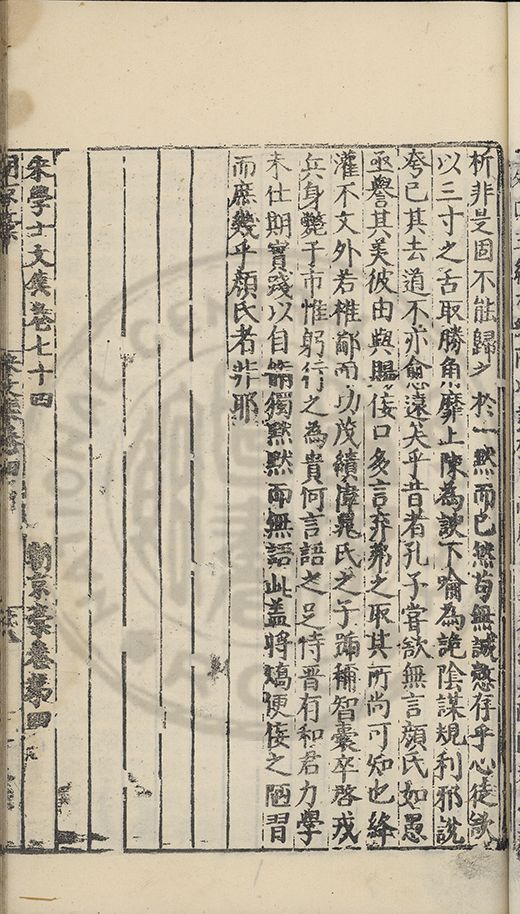 析非是固不能歸之於一黙而已然苟無誠慤存乎心徒欲
以三寸之舌取勝角靡上陳為諛下喻為詭陰謀規利邪說
夸已其去道不亦愈遠矣乎昔者孔子嘗欲無言顔氏如愚
亟譽其美彼由與賜佞口多言弃弗之取其所尚可知也絳
灌不文外若椎鄙而功茂績偉鼂氏之子踊稱智囊卒啓戎
兵身斃于市惟躬行之為貴何言語之足恃晋有和君力學
未仕期實踐以自能獨黙黙而無語此盖將矯便佞之陋習
而庶幾乎顔氏者非耶
宋學士文集卷七十四 朝京稾卷第四